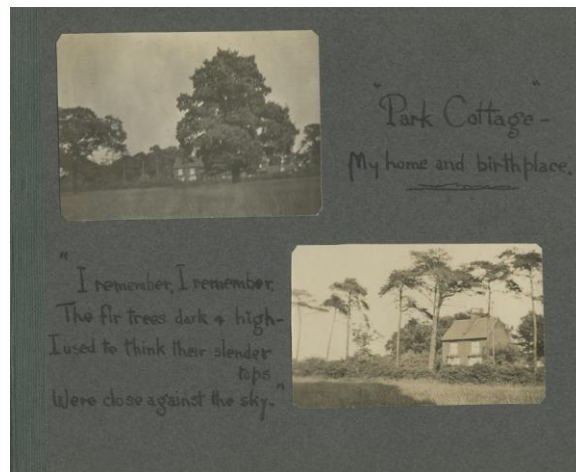 "Park Cottage" -
My home and birthplace.
"I remember, I remember,
The fir trees dark & high-
I used to think their slender
tops
Were close against the sky."